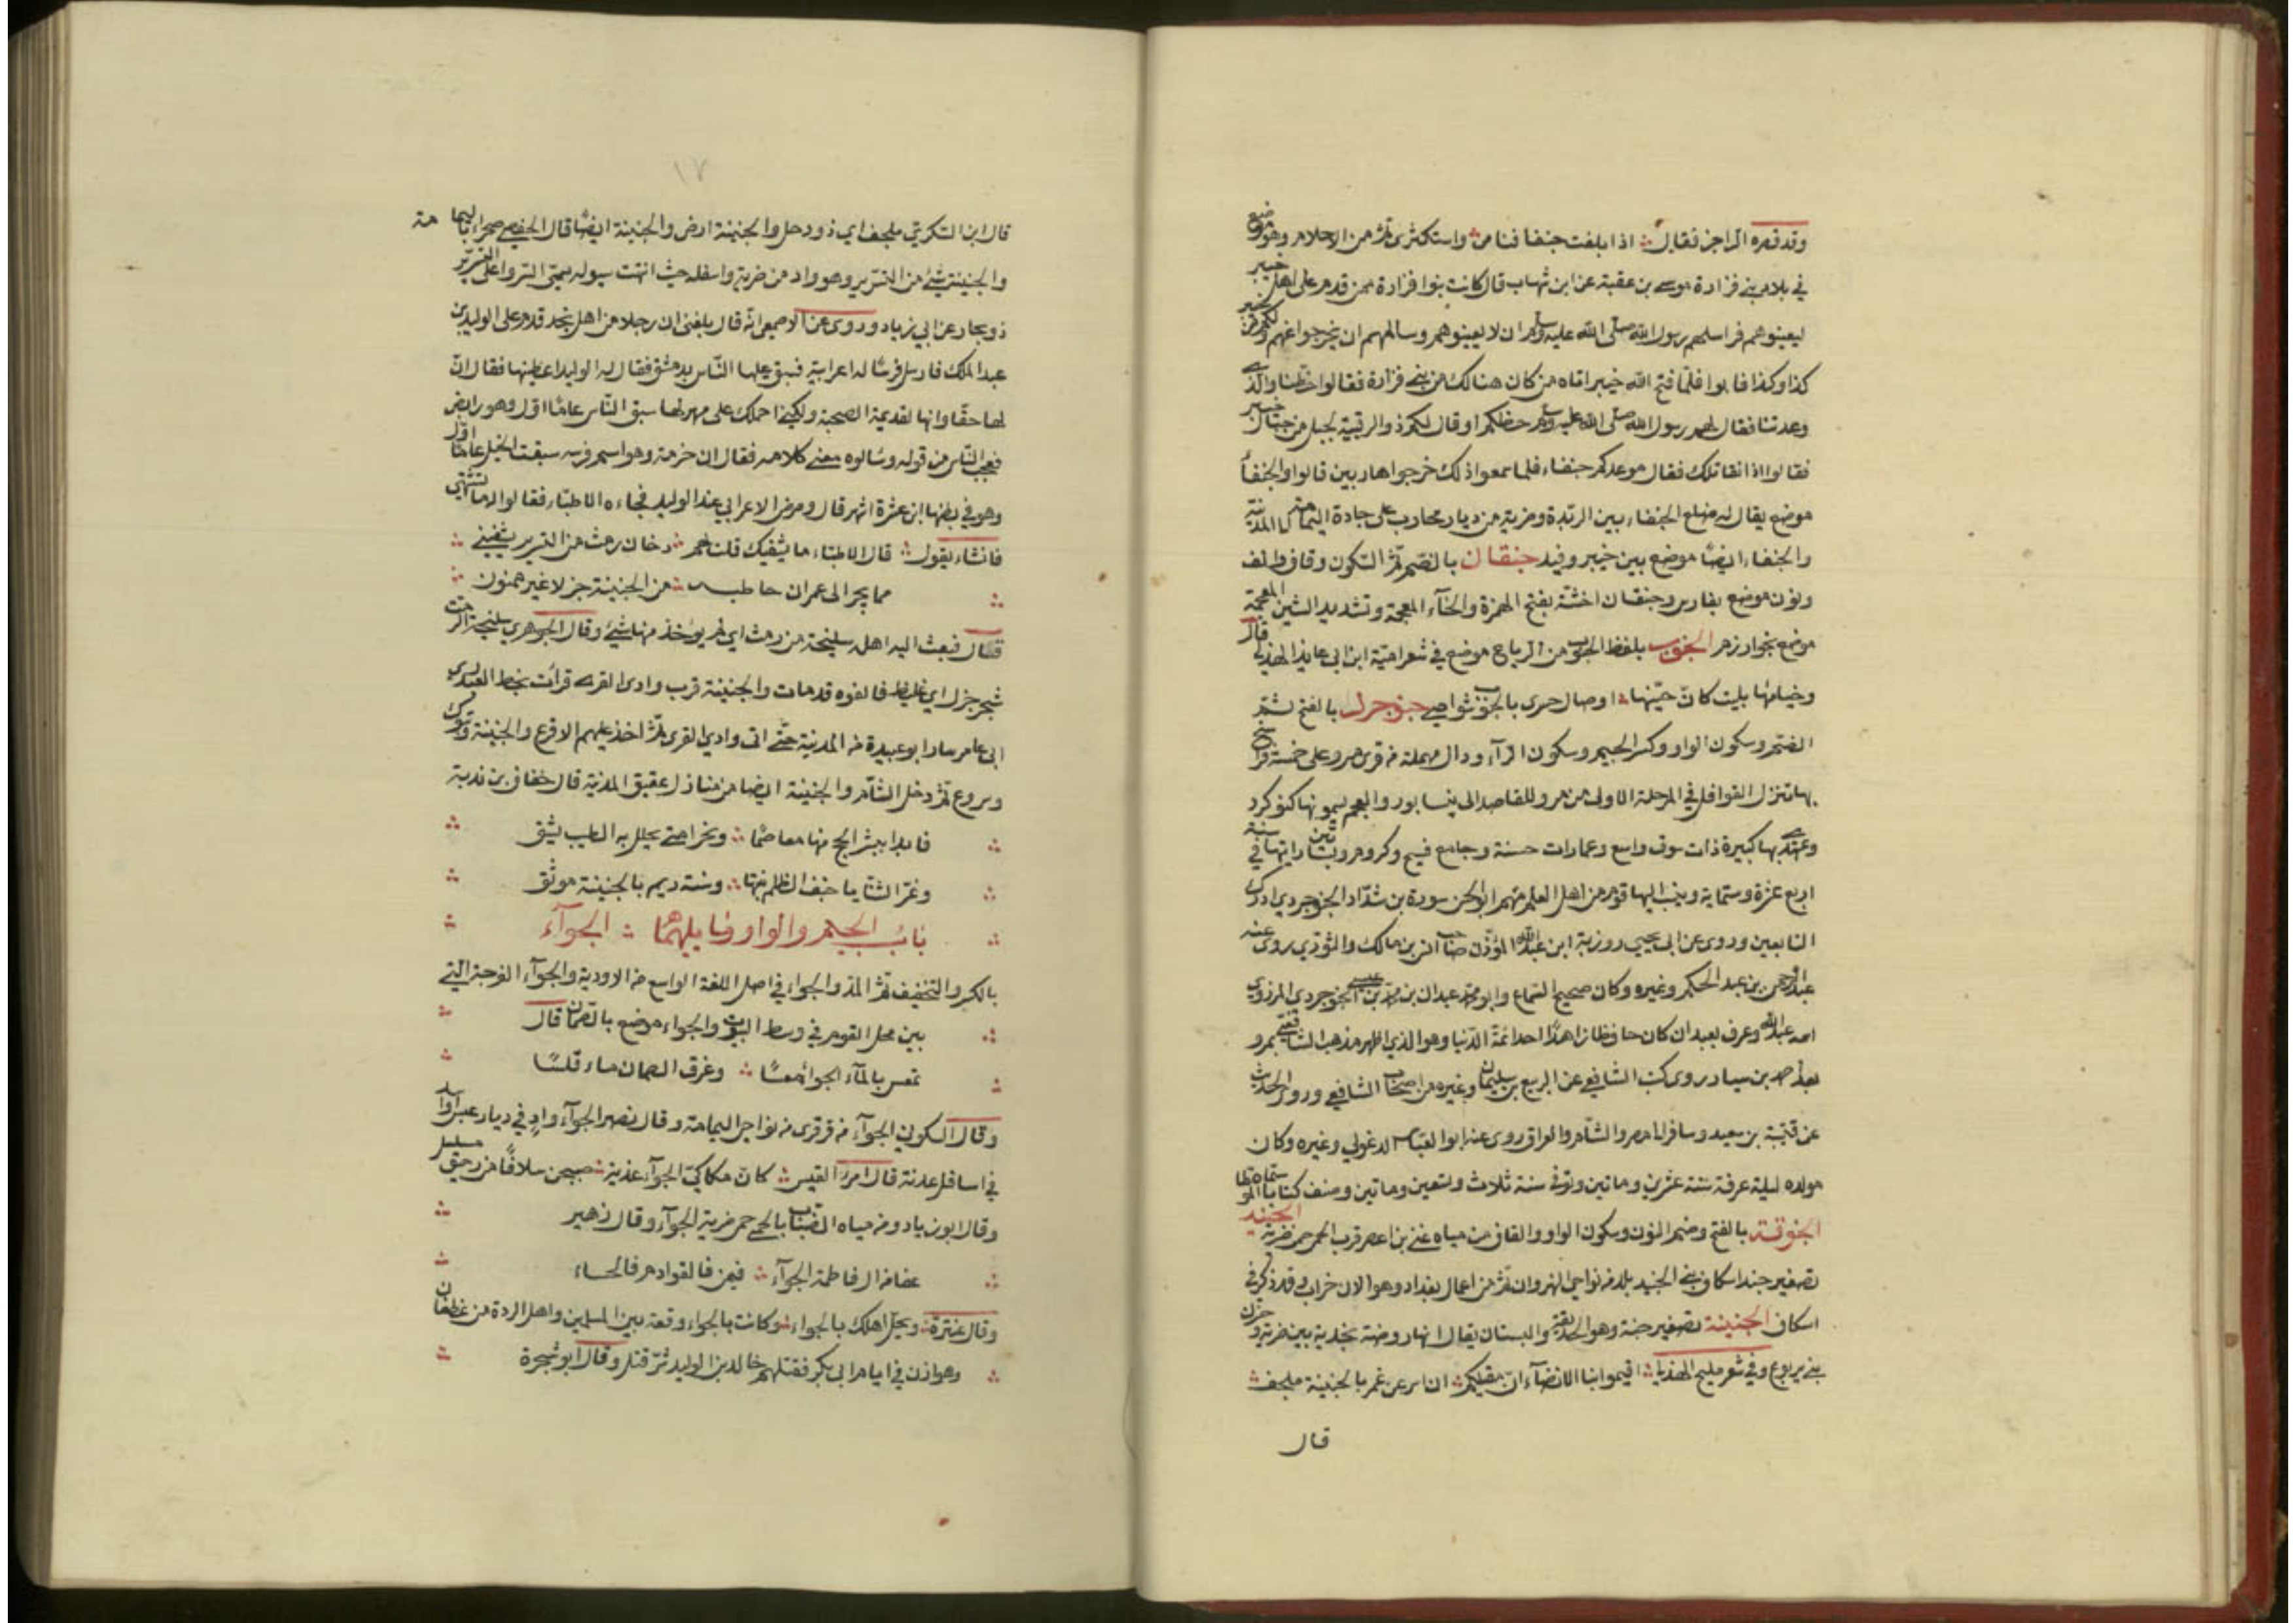 وقد قصره الراجز فقال اذا بلغت جنفا فنامى واستكثرى ثم من الاحلام وهو موضع
في بلاد بني فزارة موسى بن عقبة عن ابن شهاب قال كانت بنوا فزارة ممن قدم على اهل خيبر
ليعينوهم فراسلهم رسول الله صلى الله عليه وسلم ان لا يعينوهم وسالهم ان يخرجوا عنهم ولكم من خيبر
كذا وكذا فابوا فلما فتح الله خيبر اتاه من كان هنالك من بني فزارة فقالوا حظنا والذي
وعدتنا فقال لهم رسول الله صلى الله عليه وسلم حظكم او قال لكم ذو الرقيبة لجبل من جبال خيبر
فقالوا اذا نقاتلك فقال موعدكم جنفاء فلما سمعوا ذلك خرجوا هاربين قالوا والجنفاء
موضع يقال له ضلع الجنفاء بين الربذة وضرية من ديار محارب على جادة اليمامة الى المدينة
والجنفاء ايضا موضع بين خيبر وفيد جنقان بالضم ثم السكون وقاف والف
ونون موضع بفارس وجنقان اخشه بفتح الهمزة والخاء المعجمة وتشديد الشين المعجمة
موضع بخوارزم الجنوب بلفظ الجنوب من الرياح موضع في شعر امية ابن ابي عايذ الهذلي قال
وخيامها بليت كان حنيها اوصال حسرى بالجنوب شواصي جنوجرد بالفتح ثم
الضم وسكون الواو وكسر الجيم وسكون الراء ودال مهملة من قرى مرو على خمسة فراسخ
بها تنزل القوافل في المرحلة الاولى من مرو للقاصد الى نيسابور والعجم يسمونها كنوكرد
وعهدي بها كبيرة ذات سوق واسع وعمارات حسنة وجامع فسيح وكروم وبساتين رايتها في سنة
اربع عشرة وستماية وينسب اليها قوم من اهل العلم منهم ابو الحسن سورة بن شداد الجنوجردي ادرك
التابعين وروى عن ابي يحيى زربي ابن عبد الله المؤذن صاحب انس بن مالك والثوري روى عنه
عبد الرحمن بن عبد الحكم وغيره وكان صحيح السماع وابو محمد عبدان بن محمد بن عيسى الجنوجردي المروزي
اسمه عبد الله وعرف بعبدان كان حافظا زاهدا احد ائمة الدنيا وهو الذي اظهر مذهب الشافعي بمرو
بعد احمد بن سيار روى كتب الشافعي عن الربيع بن سليمان وغيره من اصحاب الشافعي وروى الحديث
عن قتيبة بن سعيد وسافر الى مصر والشام والعراق روى عنه ابو العباس الدغولي وغيره وكان
مولده ليلة عرفة سنة عشرين وماتين وتوفي سنة ثلاث وتسعين وماتين وصنف كتابا سماه الموطا
الجنوقة بالفتح وضم النون وسكون الواو والقاف من مياه غني بن اعصر قرب الحمى حمى ضرية الجنيد
تصغير جند اسكاف بني الجنيد بلد من نواحي النهروان ثم من اعمال بغداد وهو الان خراب وقد ذكر في
اسكاف الجنينة تصغير جنة وهو الحديقة والبستان يقال انها روضة نجدية بين ضرية وحزن
بني يربوع وفي شعر مليح الهذلي اقيموا بنا الانضاء ان مقيلكم ان اسرعن غمر بالجنينة ملجف
قال
١٧
قال ابن السكريتي ملجف اي ذو دحل والجنينة ارض والجنينة ايضا قال الحفصي صحراء باليمامة
والجنينة شيء من التسرير وهو واد من ضرية واسفله حيث انتهت سيوله يسمى السر واعلى التسرير
ذو بحار عن ابي زياد وروى عن الاصمعي انه قال بلغني ان رجلا من اهل نجد قدم على الوليد بن
عبد الملك فارسل فرسا له اعرابية فسبق عليها الناس بدمشق فقال له الوليد اعطنيها فقال ان
لها حقا وانها لقديمة الصحبة ولكني احملك على مهر لها سبق الناس عاما اول وهو رابض
فعجب الناس من قوله وسالوه معنى كلامه فقال ان حزمة وهو اسم فرسه سبقت الخيل عاما اول
وهو في بطنها ابن عشرة اشهر قال ومرض الاعرابي عند الوليد فجاءه الاطباء فقالوا له ما تشتهي
فانشاء يقول قال الاطباء ما يشفيك قلت لهم دخان رمث من التسرير يشفيني
مما يجر الى عمران حاطبه من الجنينة جزلا غير ممنون
فقال فبعث اليه اهله سليخة من رمث اي لم يؤخذ منها شيء وقال الجوهري سليخة الرمث
شجر جزل اي غليظ فالفوه قد مات والجنينة قرب وادي القرى قرأت بخط العبدري
ابي عامر سار ابو عبيدة من المدينة حتى اتى وادي القرى ثم اخذ عليهم الاقرع والجنينة وتبوك
وسروع ثم دخل الشام والجنينة ايضا من منازل عقيق المدينة قال خفاف بن ندبة
فابدا ببشر الحج منها معاصما ونحرا متى يحلل به الطيب يشق
وغر الثنايا خنف الظلم بينها وسنة ريم بالجنينة موثق
باب الجيم والواو وما يليهما الجوآء
بالكسر والتخفيف ثم المد والجواء في اصل اللغة الواسع من الاودية والجوآء الفرجة التي
بين محل القوم في وسط البيوت والجواء موضع بالصمان قال
تمعس بالماء الجواء معسا وغرق الصمان ماء قلسا
وقال السكوني الجوآء من قرقرى من نواحي اليمامة وقال نصر الجوآء واد في ديار عبس او اسد
في اسافل عدنة قال امرؤ القيس كان مكاكي الجوآء غدية صبحن سلافا من رحيق مسلسل
وقال ابو زياد ومن مياه الضباب بالحمى حمى ضرية الجوآء وقال زهير
عفا من ال فاطمة الجوآء فيمن فالقوادم فالحساء
وقال عنترة ويحل اهلك بالجواء وكانت بالجواء وقعة بين المسلمين واهل الردة من غطفان
وهوازن في ايام ابي بكر فقتلهم خالد بن الوليد شر قتل وقال ابو شجرة